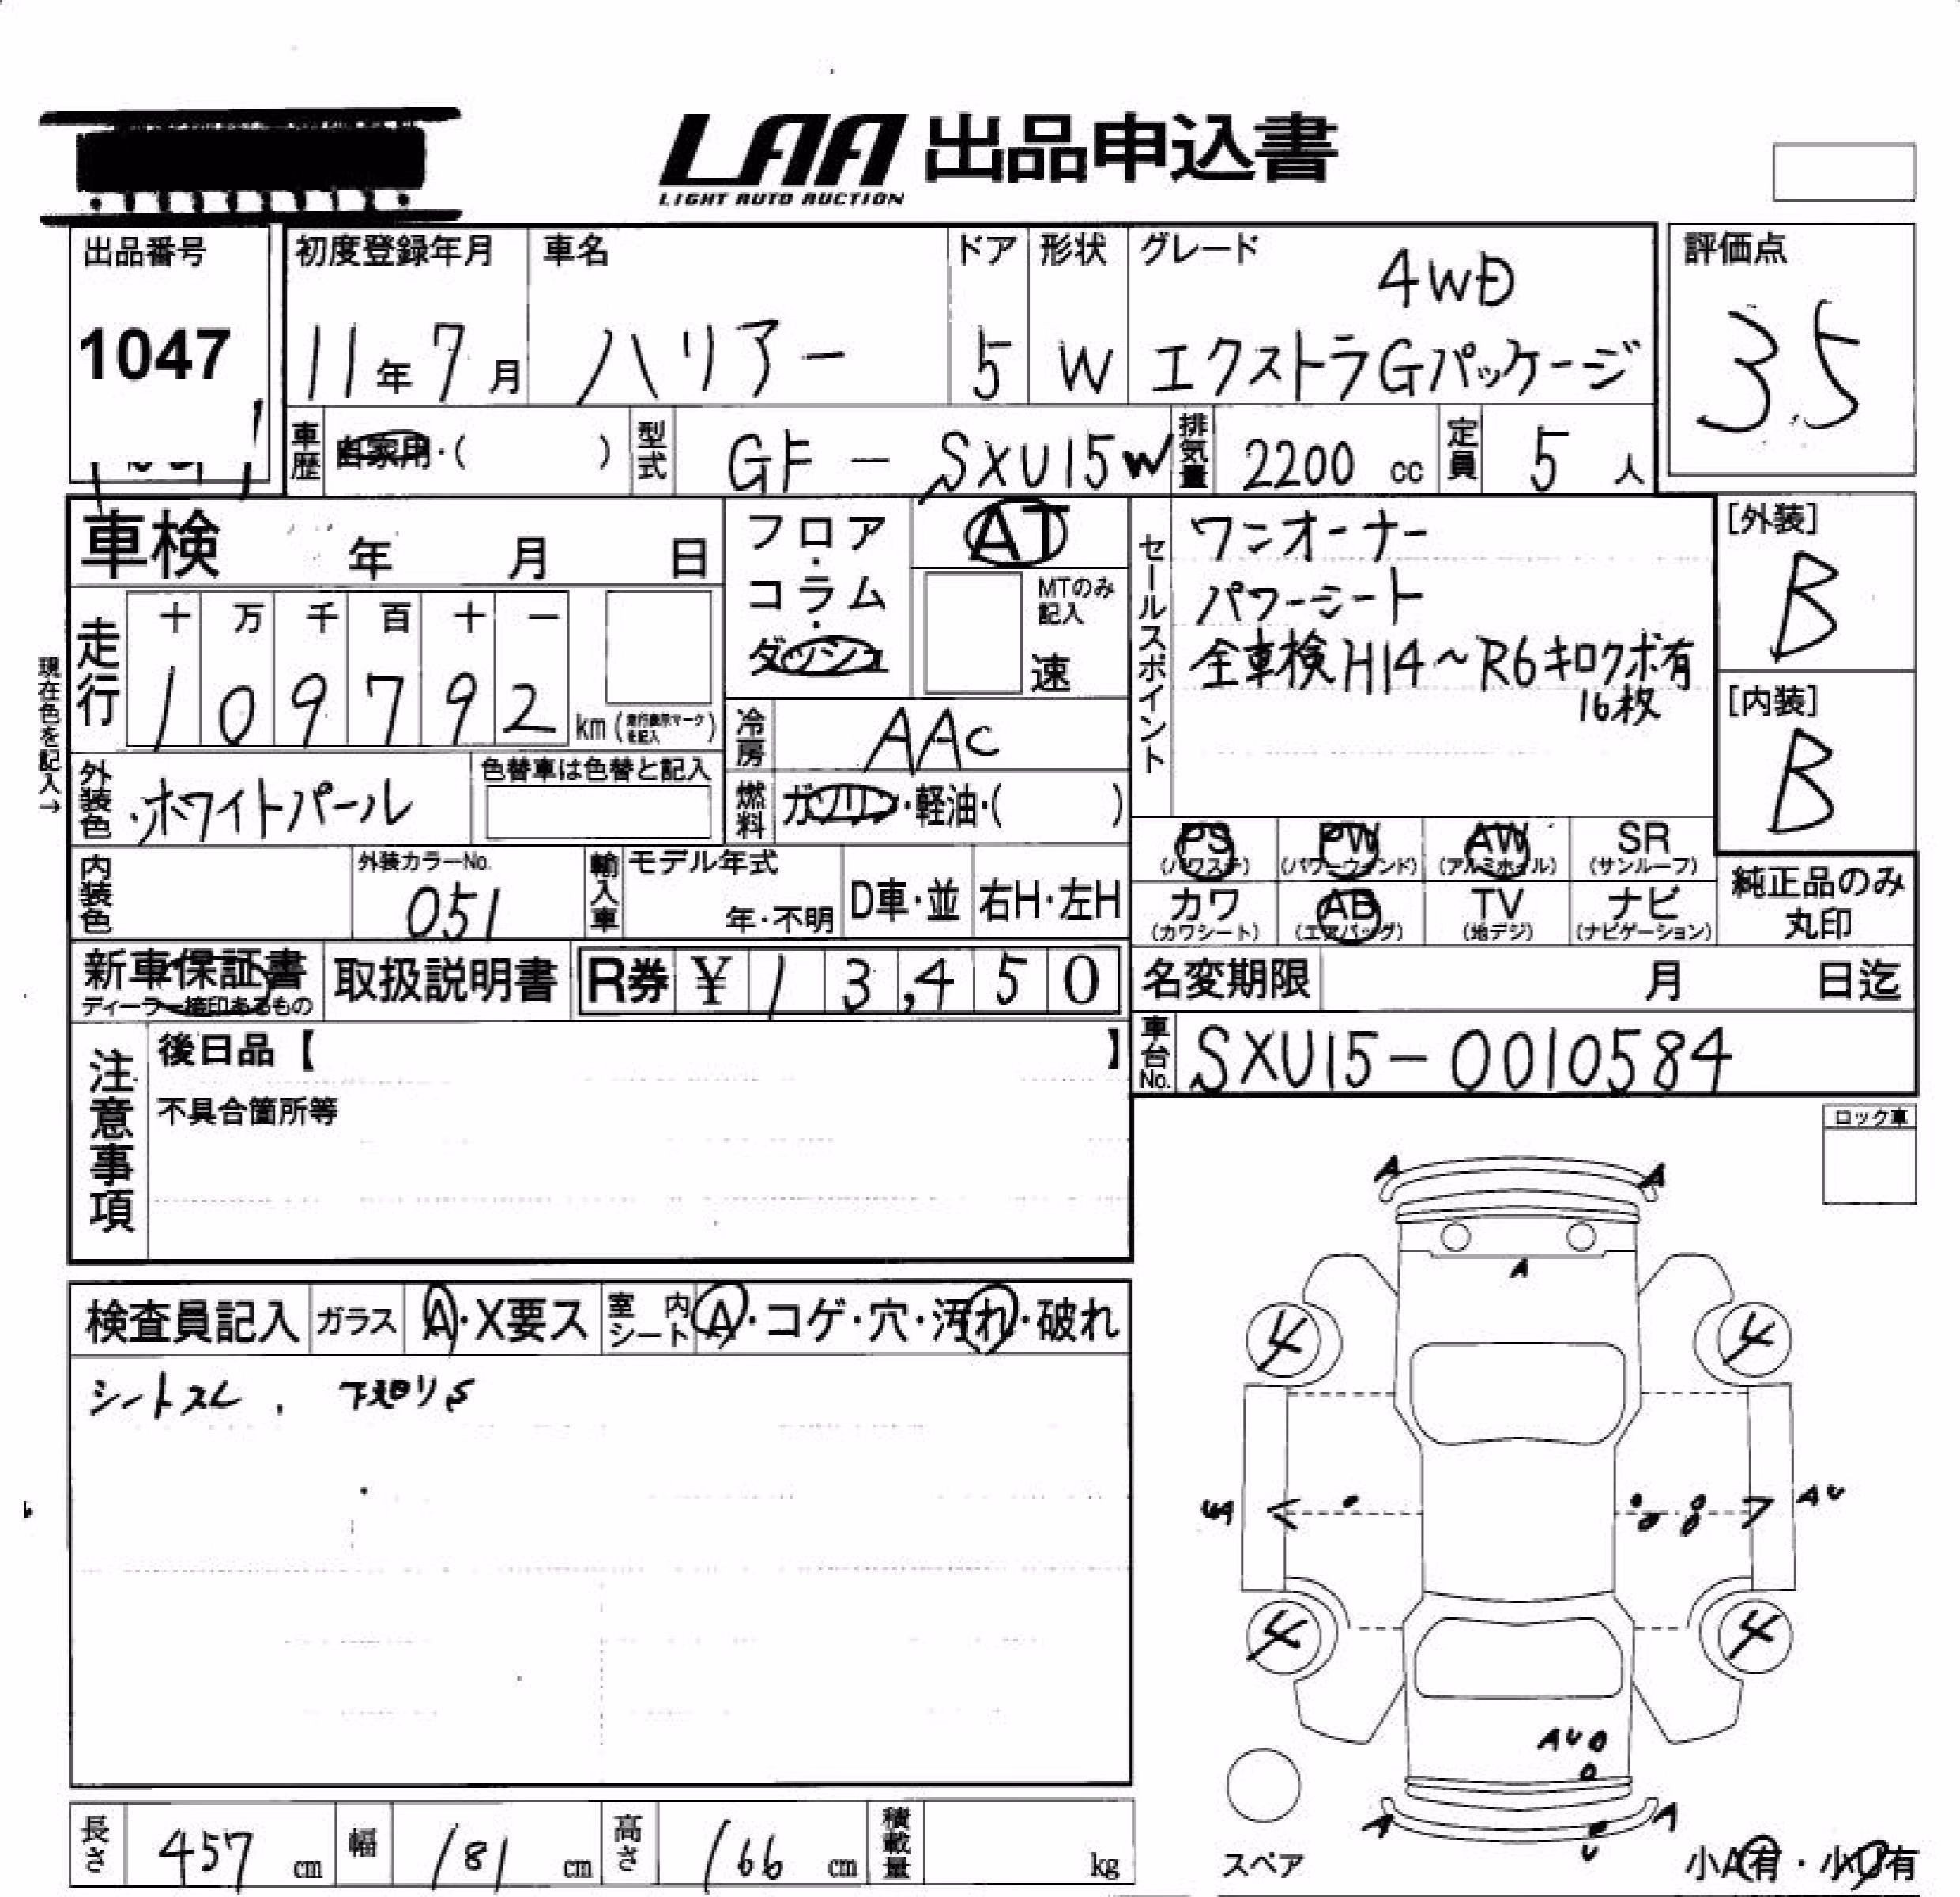 LAA 出品申込書
LIGHT AUTO AUCTION
出品番号
1047
初度登録年月
11年 7月
車名
ハリアー
ドア
5
形状
W
グレード
4WD
エクストラGパッケージ
評価点
3.5
車歴
自家用・( )
型式
GF-SXU15W
排気量
2200 cc
定員
5 人
車検 年 月 日
フロア・コラム・ダッシュ
AT
MTのみ記入
速
セールスポイント
ワンオーナー
パワーシート
全車検H14~R6キロクボ有
16枚
[外装]
B
[内装]
B
現在色を記入→
走行
十 万 千 百 十 一
1 0 9 7 9 2
km (走行表示マークを記入)
冷房
AAC
外装色
ホワイトパール
色替車は色替と記入
燃料
ガソリン・軽油・( )
PS (パワステ)
PW (パワーウィンド)
AW (アルミホイル)
SR (サンルーフ)
カワ (カワシート)
AB (エアバッグ)
TV (地デジ)
ナビ (ナビゲーション)
純正品のみ
丸印
内装色
外装カラーNo.
051
輸入車
モデル年式
年・不明
D車・並
右H・左H
新車保証書
ディーラー捺印あるもの
取扱説明書
R券 ¥ 13,450
名変期限 月 日迄
車台No.
SXU15-0010584
注意事項
後日品【 】
不具合箇所等
ロック車
検査員記入
ガラス A・X要ス
室内シート A・コゲ・穴・汚れ・破れ
シートスレ、下廻りS
A A
A
4 4
AU
4 4
AU
A A
U
スペア
小A有・小U有
長さ 457 cm
幅 181 cm
高さ 166 cm
積載量 kg